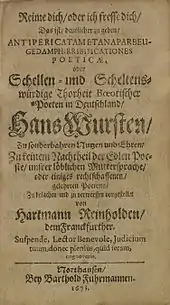 Reime dich/ oder ich fresse dich/
Das ist/ deutlicher zu geben/
ANTIPERICATAMETANAPARBEU-
GEDAMPHIRRIBIFICATIONES
POETICÆ,
oder
Schellen- und Scheltens-
würdige Thorheit Boeotischer
Poeten in Deutschland/
Hans Wursten/
Zu sonderbahren Nutzen und Ehren/
Zu keinem Nachtheil der Edlen Poe-
sie/ unsrer löblichen Muttersprache/
oder einiges rechtschaffenen/
gelehrten Poetens/
Zu belachen und zu verwerffen vorgestellet
von
Hartmann Reinholden/
dem Franckfurther.
Suspende, Lector Benevole, Judicium
tuum, donec plenius, quid rei sit,
cognoveris.
Northausen/
Bey Barthold Fuhrmannen.
1673.